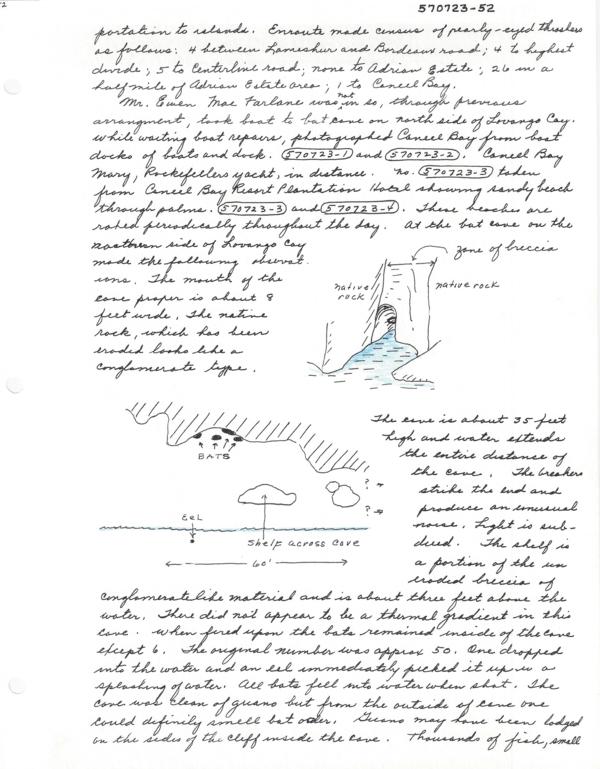 570723-52
portation to islands. Enroute made census of pearly-eyed thrashers
as follows: 4 between Lameshur and Bordeaux road; 4 to highest
divide; 5 to Centerline road; none to Adrian Estate; 26 in a
half mile of Adrian Estate area; 1 to Caneel Bay.
Mr. Ewen Mac Farlane was not in so, through previous
arrangment, took boat to bat cave on north side of Lovango Cay.
While waiting boat repairs, photographed Caneel Bay from boat
docks of boats and dock. 570723-1 and 570723-2. Caneel Bay
Mary, Rockefellers yacht, in distance. No. 570723-3 taken
from Caneel Bay Resort Plantation Hotel showing sandy beach
through palms. 570723-3 and 570723-4. These beaches are
raked periodically throughout the day. At the bat cave on the
northern side of Lovango Cay
made the following observat
ions. The mouth of the
cave proper is about 8
feet wide. The native
rock, which has been
eroded looks like a
conglomerate type.
zone of breccia
native rock
native rock
The cave is about 35 feet
high and water extends
the entire distance of
the cave. The breakers
strike the end and
produce an unusual
noise. Light is sub-
dued. The shelf is
a portion of the un
eroded breccia of
BATS
?
?
EEL
Shelf across cave
60'
conglomeratelike material and is about three feet above the
water. There did not appear to be a thermal gradient in this
cave. When fired upon the bats remained inside of the cave
except 6. The original number was approx 50. One dropped
into the water and an eel immediately picked it up in a
splashing of water. All bats fell into water when shot. The
cave was clean of guano but from the outside of cave one
could definily smell bat oder. Guano may have been lodged
on the sides of the cliff inside the cave. Thousands of fish, small